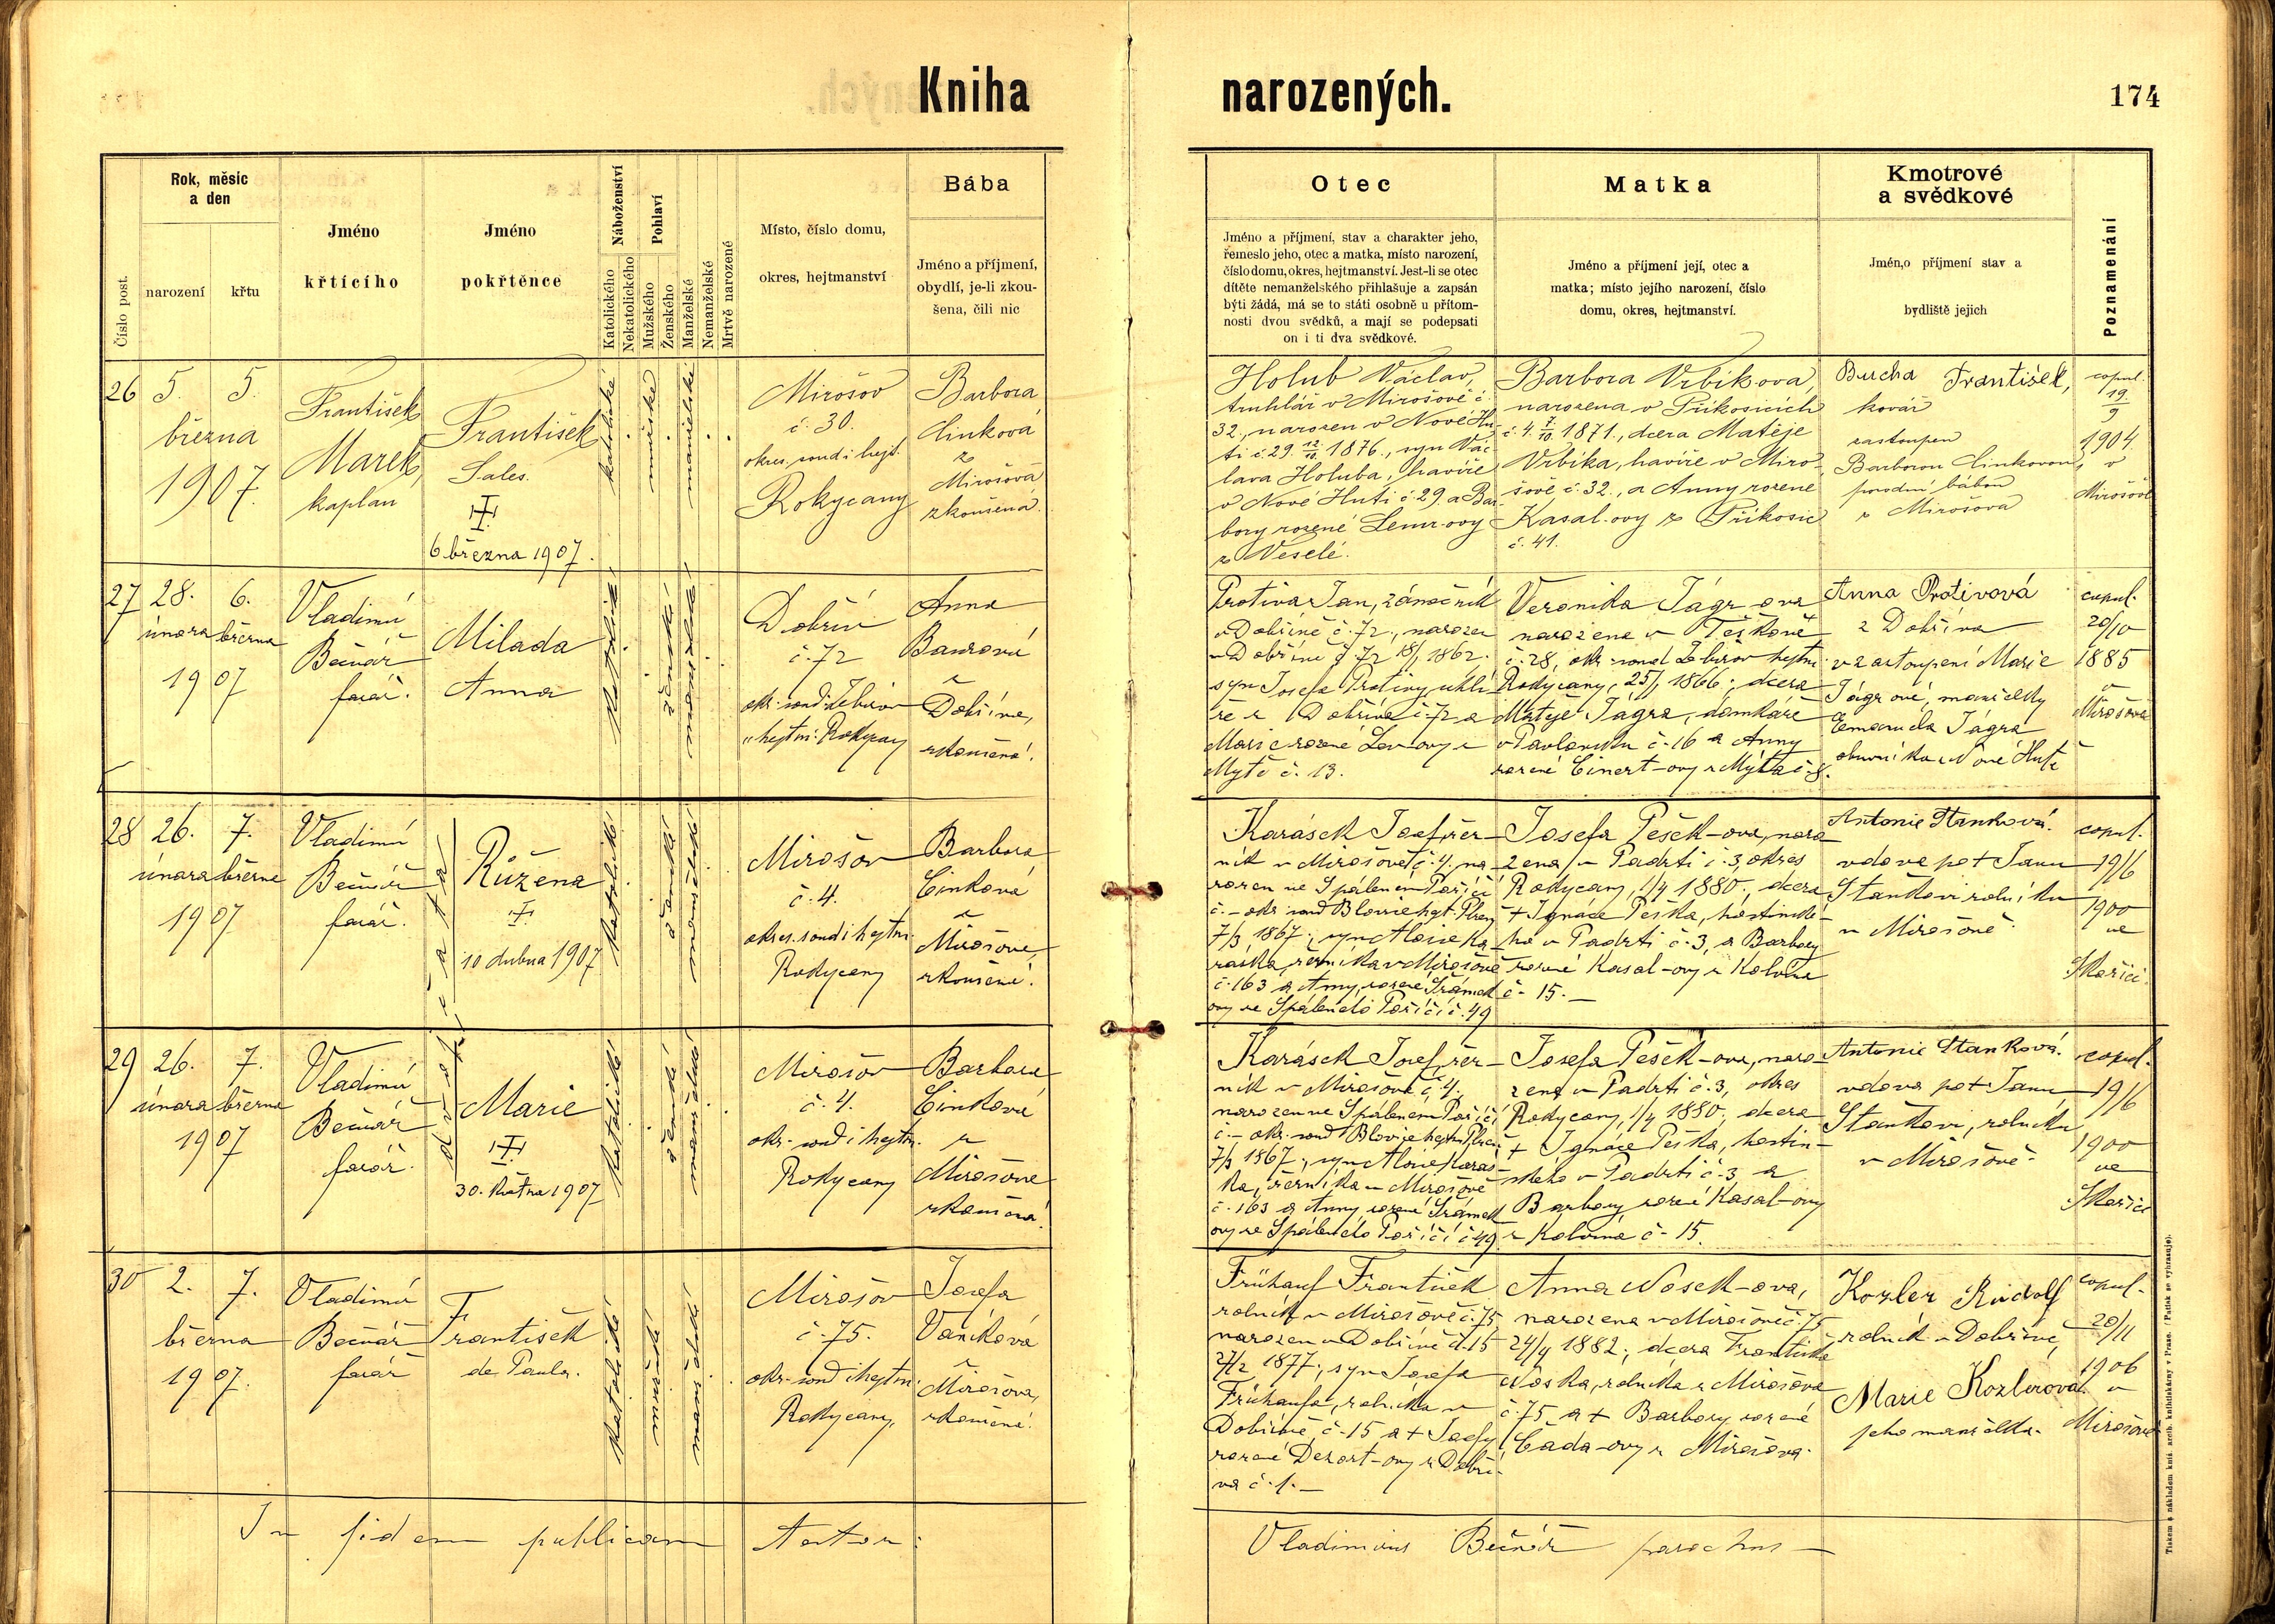 Kniha narozených.
174
Číslo post.
Rok, měsíc
a den
narození
křtu
Jméno
křtícího
Jméno
pokřtěnce
Náboženství
Katolického
Nekatolického
Pohlaví
Mužského
Ženského
Manželské
Nemanželské
Mrtvě narozené
Místo, číslo domu,
okres, hejtmanství
Bába
Jméno a příjmení,
obydlí, je-li zkou-
šena, čili nic
Otec
Jméno a příjmení, stav a charakter jeho,
řemeslo jeho, otec a matka, místo narození,
číslo domu, okres, hejtmanství. Jest-li se otec
dítěte nemanželského přihlašuje a zapsán
býti žádá, má se to státi osobně u přítom-
nosti dvou svědků, a mají se podepsati
on i ti dva svědkové.
Matka
Jméno a příjmení její, otec a
matka; místo jejího narození, číslo
domu, okres, hejtmanství.
Kmotrové
a svědkové
Jmén,o příjmení stav a
bydliště jejich
Poznamenání
26
5. 5.
března
1907.
František
Marek,
kaplan
František
Sales.
6 března 1907.
katolické
mužské
manželské
Mirošov
č. 30.
okres. soud i hejt.
Rokycany
Barbora
Cinková
z
Mirošova
zkoušená.
Holub Václav,
truhlář v Mirošově č.
32., narozen v Nové Hu-
ti č. 29. 12/12 1876., syn Vác-
lava Holuba, havíře
v Nové Huti č. 29. a Bar-
bory rozené Lemr-ovy
z Veselé.
Barbora Vrbíkova,
narozena v Příkosicích
č. 4. 7/10. 1871., dcera Matěje
Vrbíka, havíře v Miro-
šově č. 32., a Anny rozené
Kasal-ovy z Příkosic
č. 41.
Bucha František,
kovář
zastoupen
Barborou Cinkovou,
porodní bábou
z Mirošova
copul.
19/9
1904.
v
Mirošově
27
28. 6.
února března
1907
Vladimír
Bečvář
farář.
Milada
Anna
katolické
ženské
manželské
Dobřív
č. 72
okr. soud: Zbirov
" hejtm: Rokycany
Anna
Baurová
z
Dobříva,
zkoušená.
Protiva Jan, zámečník
v Dobřívě č. 72., narozen
v Dobřívě č. 72 18/1 1862.
syn Josefa Protivy, uhlí-
ře z Dobříva č. 72 a
Marie rozené Lev-ovy z
Mýtě č. 13.
Veronika Jágr-ova
narozena v Těškově
č. 28, okr. soud Zbirov hejtm:
Rokycany, 25/1 1866., dcera
Matěje Jágra, domkáře
v Pavlovsku č. 16 a Anny
rozené Einert-ovy z Mýta č. 8.
Anna Protivová
z Dobříva
v zastoupení Marie
Jágrové, manželky
Emanuela Jágra
obuvníka z Nové Huti
copul.
20/10
1885
v
Mirošově
28
26. 7.
února března
1907
Vladimír
Bečvář
farář.
dvojčata
Růžena
10 dubna 1907
katolické
ženské
manželské
Mirošov
č. 4.
okres. soud i hejtm.
Rokycany
Barbora
Cinková
z
Mirošova,
zkoušená.
Karásek Josef, řez-
ník v Mirošově č. 4. na-
rozen ve Spáleném Poříčí
č. – okr. soud Blovice hejt. Plzeň
7/3 1867., syn Aloise Ka-
ráska, řezníka v Mirošově
č. 163 a Anny, rozené Šrámek
ovy ze Spáleného Poříčí č. 49
Josefa Pešek-ova, naro
zena v Padrti č. 3, okres
Rokycany, 1/4 1880., dcera
+ Ignáce Peška, hostinské-
ho v Padrti č. 3, a Barbory
rozené Kasal-ovy z Kolvína
č. 15.
Antonie Stanková.
vdova po + Janu
Staňkovi rolníku
v Mirošově.
copul.
19/6
1900
ve
Skořici.
29
26. 7.
února března
1907
Vladimír
Bečvář
farář.
Marie
30. května 1907
katolické
ženské
manželské
Mirošov
č. 4.
okr. soud i hejtm.
Rokycany
Barbora
Cinková
z
Mirošova
zkoušená.
Karásek Josef, řez-
ník v Mirošově č. 4.
narozen ve Spáleném Poříčí
č. – okr. soud Blovice hejtm Plzeň
7/3 1867., syn Aloise Karás-
ka, řezníka v Mirošově
č. 163 a Anny rozené Šrámek
ovy ze Spáleného Poříčí č. 49
Josefa Pešek-ova, naro-
zena v Padrti č. 3, okres
Rokycany, 1/4 1880, dcera
+ Ignáce Peška, hostin-
ského v Padrti č. 3 a
Barbory rozené Kasal-ovy
z Kolvína č. 15.
Antonie Stanková.
vdova po + Janu
Staňkovi, rolníku
v Mirošově.
copul.
19/6
1900
ve
Skořici
30
2. 7.
března
1907.
Vladimír
Bečvář
farář
František
de Paula.
katolické
mužské
manželské
Mirošov
č. 75.
okr. soud i hejtm.
Rokycany,
Josefa
Vaníková
z
Mirošova,
zkoušená.
Frühauf František
rolník v Mirošově č. 75,
narozen v Dobřívě č. 15
27/2 1877., syn Josefa
Frühaufa, rolníka v
Dobřívě č. 15 a + Josefy
rozené Dezort-ovy z Dobří-
va č. 1.
Anna Nosek-ova,
narozena v Mirošově č. 75
24/4 1882., dcera Františka
Noska, rolníka z Mirošova
č. 75 a + Barbory rozené
Čada-ovy z Mirošova.
Kozler Rudolf
rolník v Dobřívě,
Marie Kozlerová.
jeho manželka.
copul.
20/11
1906
v
Mirošově
In fidem publicam
Vladimirus Bečvář parochus
Tiskem a nákladem kníž. arcib. knihtiskárny v Praze. (Patisk se vyhrazuje).